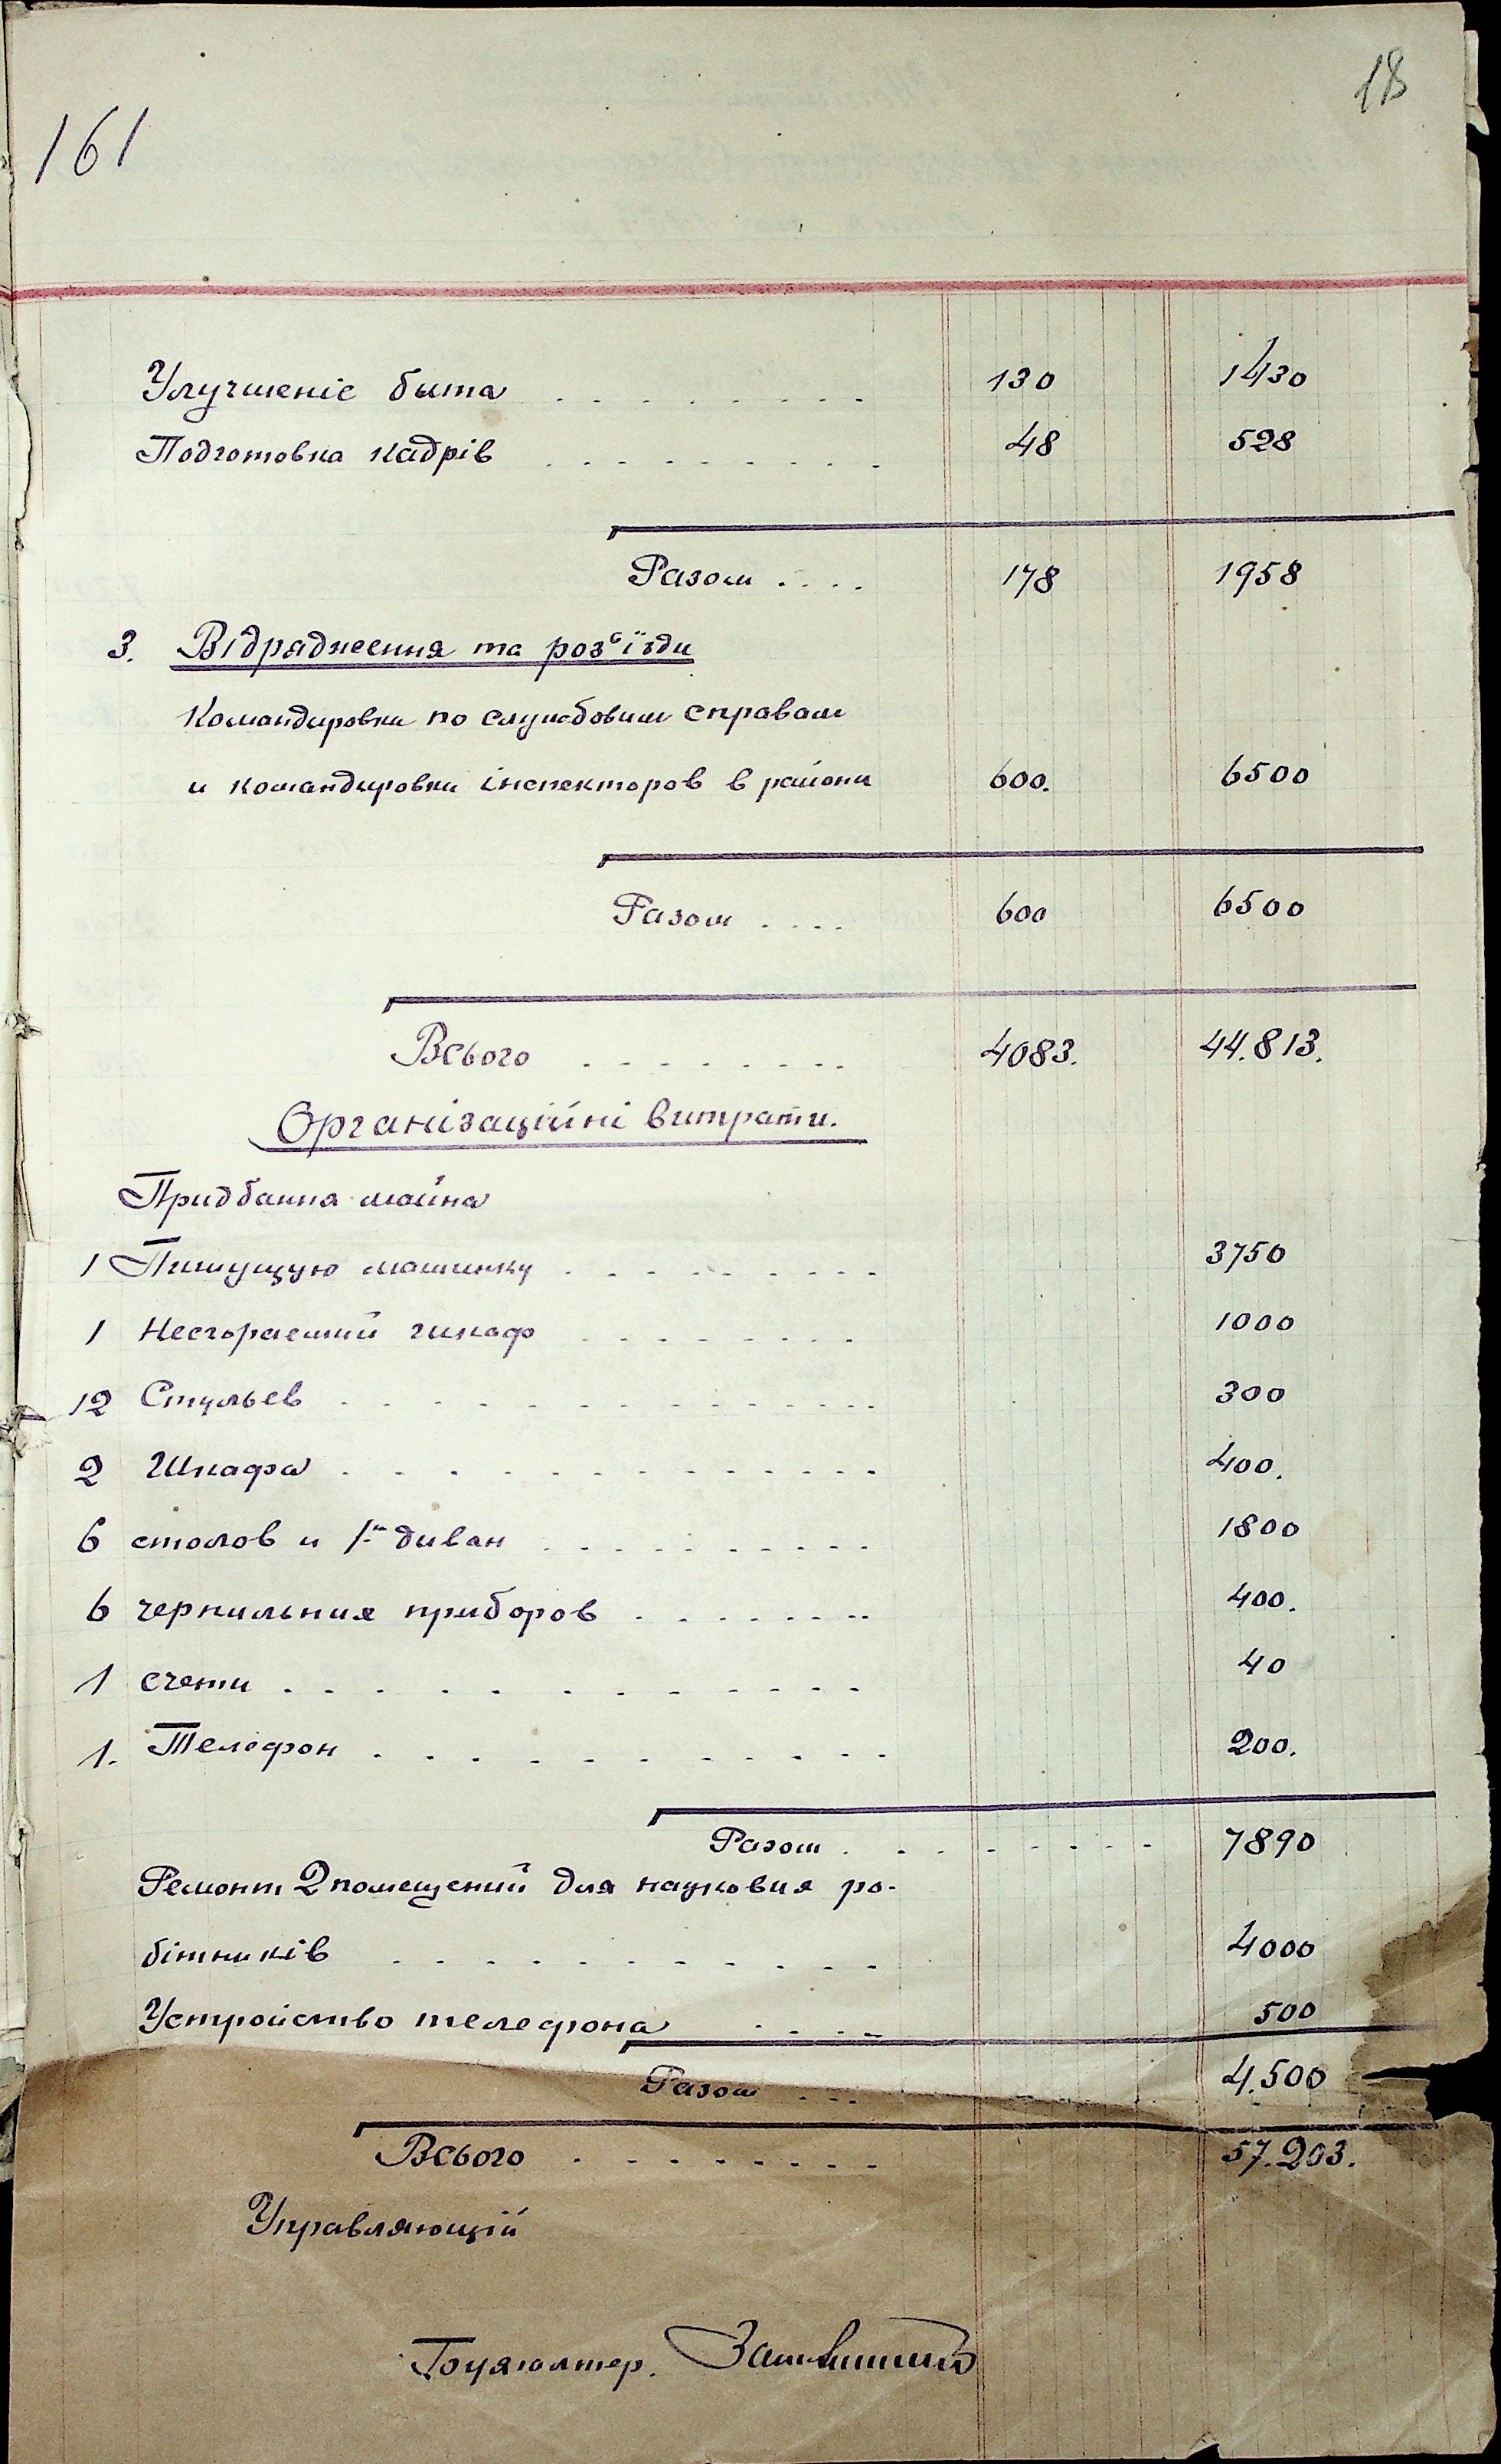 18
161
Улучшеніе быта . . . . . . . . . 130 1430
Подготовка кадрів . . . . . . . . . 48 528
Разом . . . . 178 1958
3. Відрядження та роз'їзди
Командировки по служебовим справам
и командировки інспекторов в райони 600. 6500
Разом . . . . 600 6500
Всього . . . . . . . . 4083. 44.813.
Організаційні витрати.
Придбання майна
1 Пишущую машинку . . . . . . . . . 3750
1 Несгораемий шкаф . . . . . . . . 1000
12 Стульев . . . . . . . . . . . . 300
2 Шкафа . . . . . . . . . . . . 400.
6 столов и 1н диван . . . . . . . . . 1800
6 чернильния приборов . . . . . . . 400.
1 счети . . . . . . . . . . . 40
1. Телефон . . . . . . . . . . 200.
Разом . . . . . . . . 7890
Ремонт 2 помещений для наукових ро-
бітників . . . . . . . . . . . 4000
Устройство телефона . . . . 500
Разом . . . 4.500
Всього . . . . . . . . 57.203.
Управляющій
Бухгалтер.